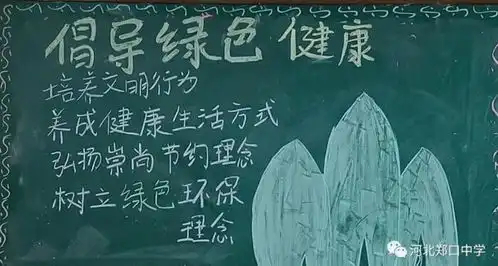 倡导绿色 健康
培养文明行为
养成健康生活方式
弘扬崇尚节约理念
树立绿色环保
理念
河北郑口中学